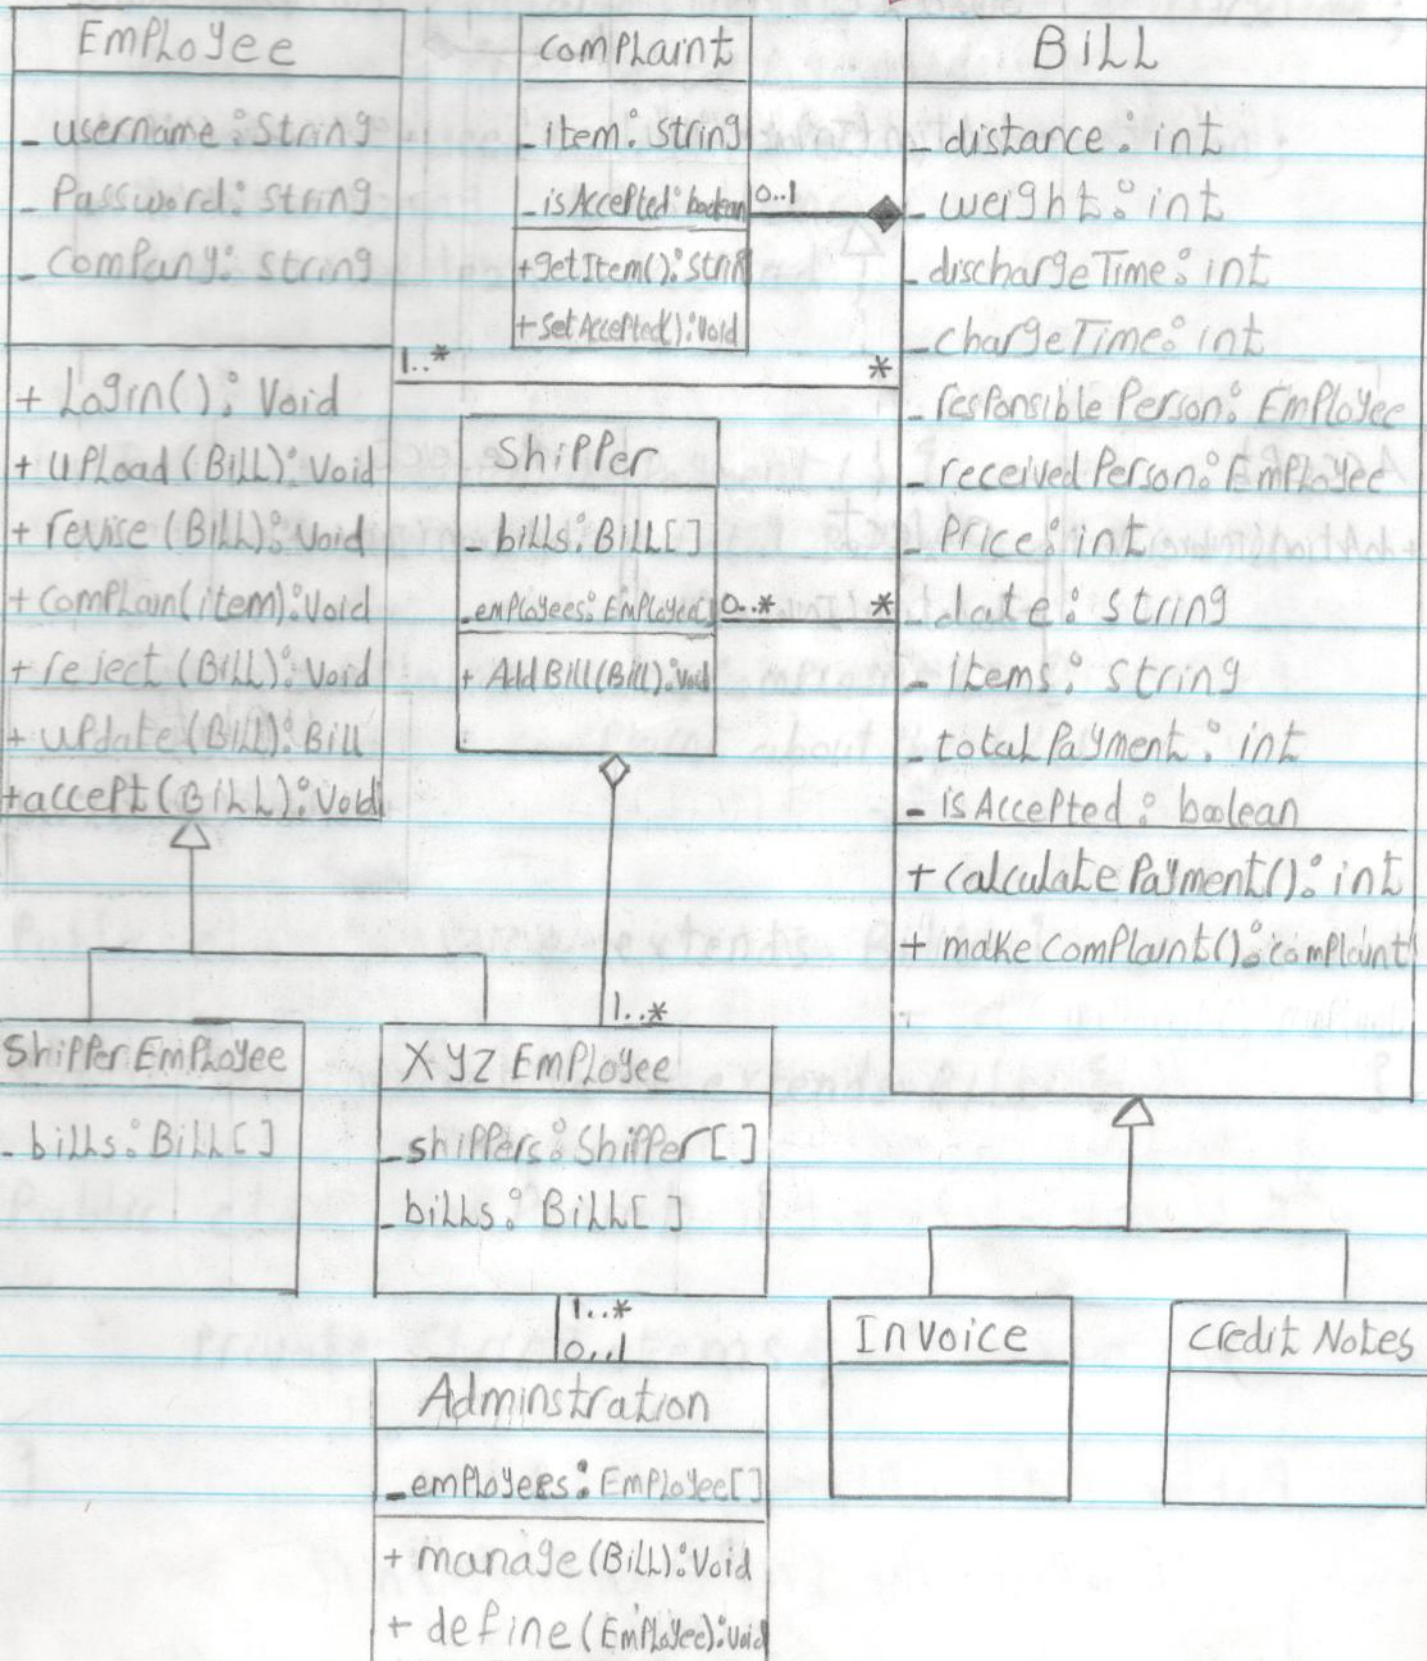 Employee
- username: String
- Password: String
- Company: String
+ Login(): Void
+ upload (Bill): Void
+ revise (Bill): Void
+ complain(item): Void
+ reject (Bill): Void
+ update (Bill): Bill
+accept (Bill): Void
complaint
- item: string
- isAccepted: boolean
+getItem(): Strin
+ setAccepted(): Void
0..1
Bill
- distance: int
- weight: int
- dischargeTime: int
- chargeTime: int
- responsible Person: Employee
- received Person: Employee
- Price: int
- date: string
- items: string
- total Payment: int
- isAccepted: boolean
+ calculate Payment(): int
+ make complaint(): complaint
1..*
*
Shipper
- bills: Bill[]
- employees: Employee[]
+ AddBill(Bill): Void
0..*
*
1..*
Shipper Employee
- bills: Bill[]
XYZ Employee
- shippers: Shipper[]
- bills: Bill[]
1..*
0..1
Adminstration
- employees: Employee[]
+ manage (Bill): Void
+ define (Employee): Void
Invoice
Credit Notes